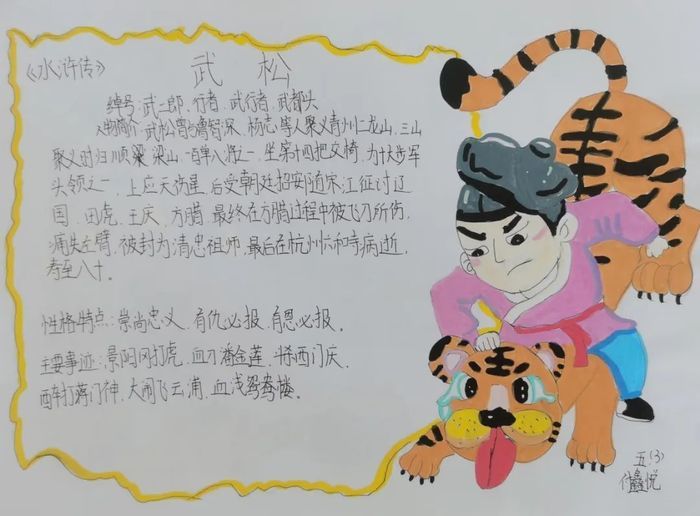 《水浒传》
武松
绰号:武二郎、行者、武行者、武都头
人物简介:武松曾与鲁智深、杨志等人聚义青州二龙山、三山
聚义时归顺梁山、一百单八将之一、坐第十四把交椅、为十大步军
头领之一、上应天伤星、后受朝廷招安随宋江征讨辽
国、田虎、王庆、方腊、最终在方腊过程中被飞刀所伤、
痛失左臂、被封为清忠祖师、最后在杭州六和寺病逝、
寿至八十。
性格特点:崇尚忠义、有仇必报、有恩必报。
主要事迹:景阳冈打虎、血刃潘金莲、斗西门庆、
醉打蒋门神、大闹飞云浦、血浅鸳鸯楼。
五(3)
付鑫悦